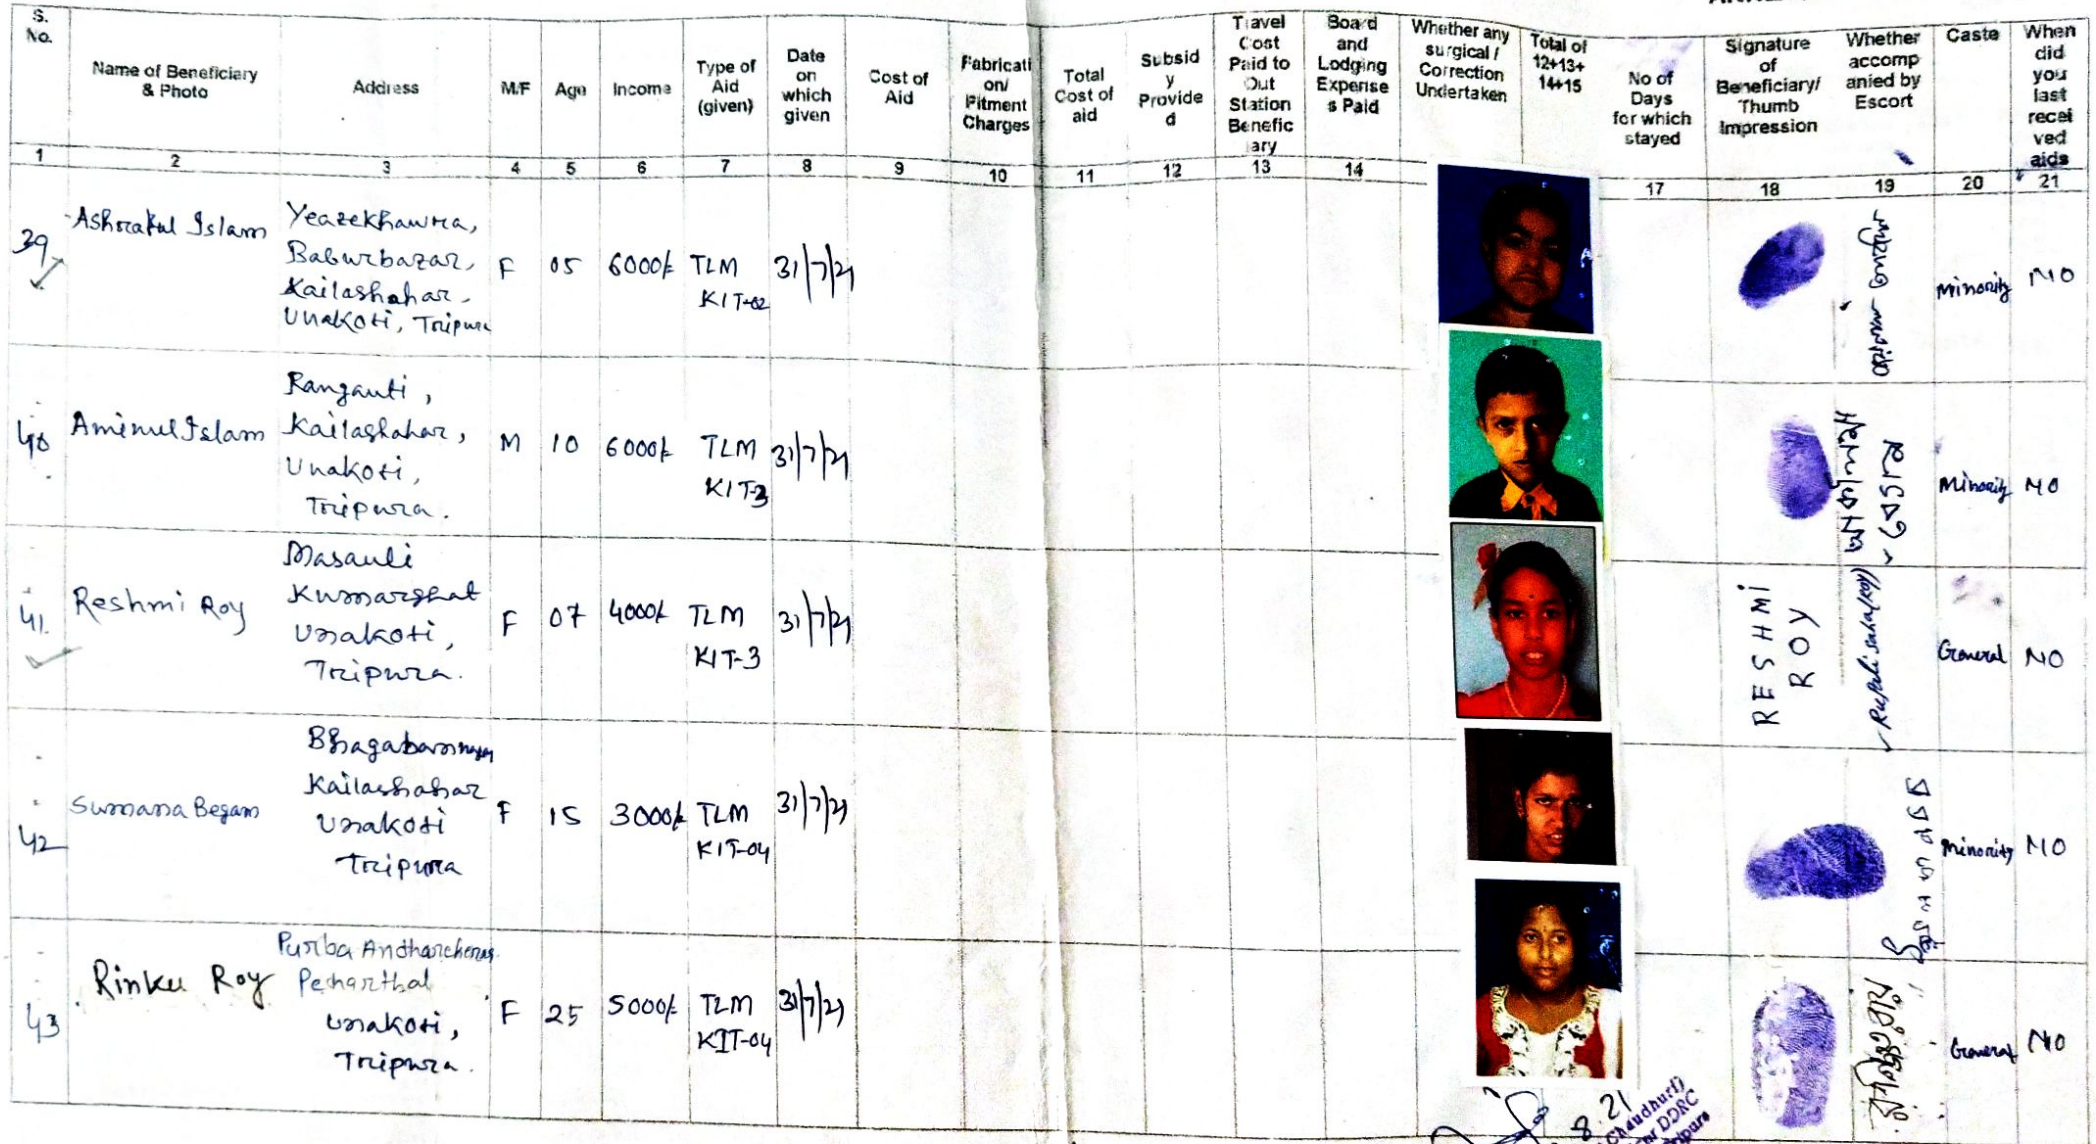 S. No.
Name of Beneficiary & Photo
Address
M/F
Age
Income
Type of Aid (given)
Date on which given
Cost of Aid
Fabricati on/ Fitment Charges
Total Cost of aid
Subsid y Provide d
Travel Cost Paid to Out Station Benefic iary
Board and Lodging Expense s Paid
Whether any surgical / Correction Undertaken
Total of 12+13+ 14+15
No of Days for which stayed
Signature of Beneficiary/ Thumb Impression
Whether accomp anied by Escort
Caste
When did you last recei ved aids
1 2 3 4 5 6 7 8 9 10 11 12 13 14 17 18 19 20 21
39 Ashrakul Islam
Yeazekhawra,
Baburbazar,
Kailashahar,
Unakoti, Tripura
F 05 6000/- TLM KIT-02 31/7/21
Minority NO
40 Aminul Islam
Rangauti,
Kailashahar,
Unakoti,
Tripura.
M 10 6000/- TLM KIT-3 31/7/21
Minority NO
41. Reshmi Roy
Masauli
Kumarghat
Unakoti,
Tripura.
F 07 4000/- TLM KIT-3 31/7/21
RESHMI
ROY
General NO
42 Sumana Begam
Kailashahar
Unakoti
Tripura
F 15 3000/- TLM KIT-04 31/7/21
Minority NO
43 Rinku Roy
Purba
Pecharthal
Unakoti,
Tripura.
F 25 5000/- TLM KIT-04 31/7/21
General NO
8.21
Chaudhuri)
DDRC